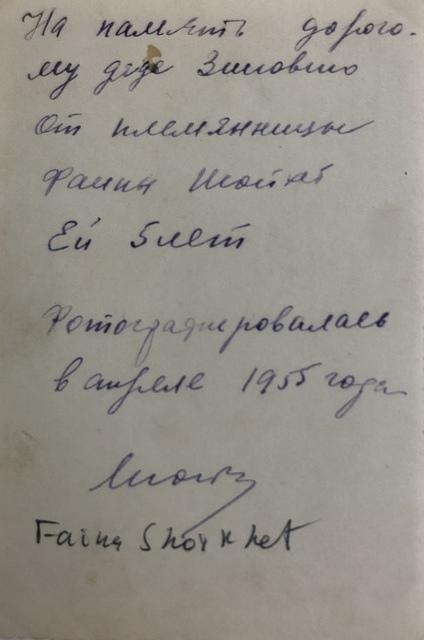 На память дорого-
му деде Зиновию
От племянницы
Фаины Шойхет
Ей 5 лет
Фотографировалась
в апреле 1955 года
Faina Shoikhet